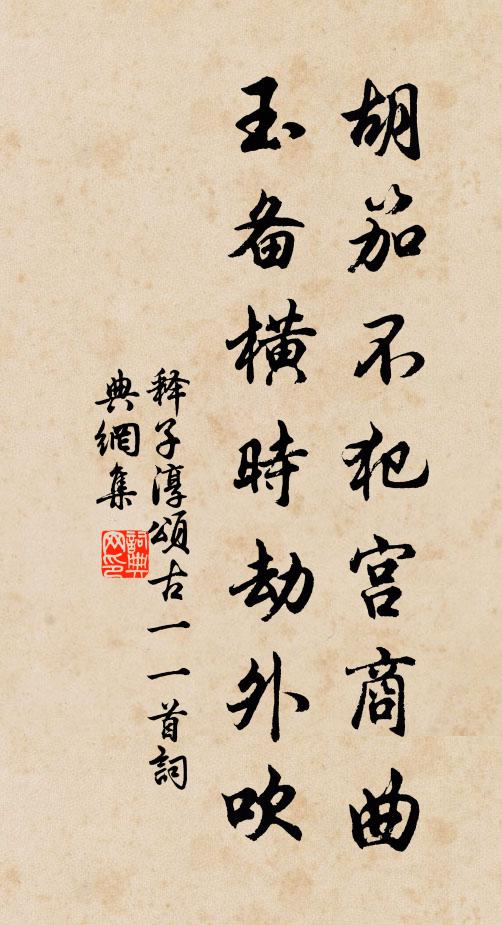 胡笳不犯宫商曲
玉备横時劫外吹
释子淳頌古一一首詞
典網集
詞典
网印